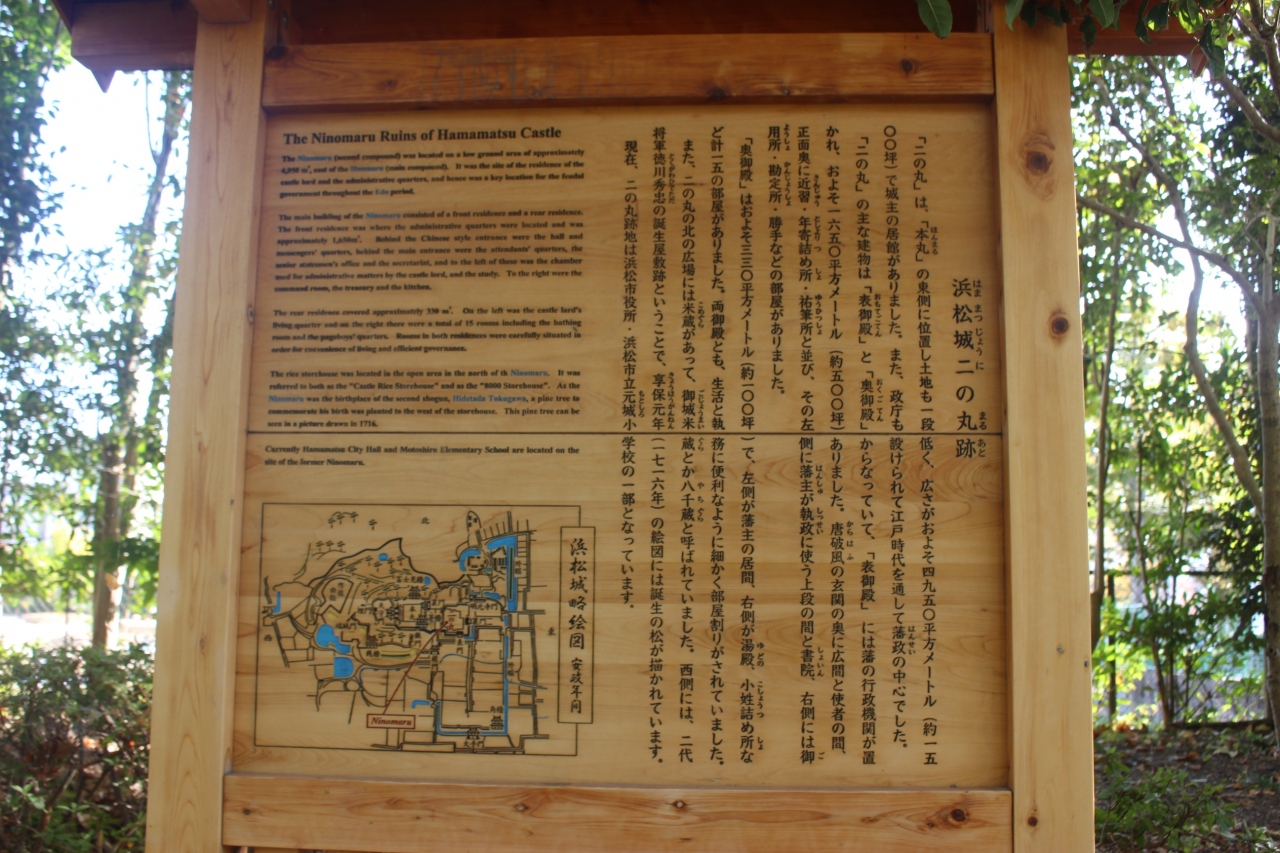 The Ninomaru Ruins of Hamamatsu Castle
The Ninomaru (second compound) was located on a low ground area of approximately
4,950 m², east of the Honmaru (main compound). It was the site of the residence of the
castle lord and the administrative quarters, and hence was a key location for the feudal
government throughout the Edo period.
The main building of the Ninomaru consisted of a front residence and a rear residence.
The front residence was where the administrative quarters were located and was
approximately 1,650m². Behind the Chinese style entrance were the hall and
messengers' quarters, behind the main entrance were the attendants' quarters, the
senior statesmen's office and the secretariat, and to the left of these was the chamber
used for administrative matters by the castle lord, and the study. To the right were the
command room, the treasury and the kitchen.
The rear residence covered approximately 330 m². On the left was the castle lord's
living quarter and on the right there were a total of 15 rooms including the bathing
room and the pageboys' quarters. Rooms in both residences were carefully situated in
order for convenience of living and efficient governance.
The rice storehouse was located in the open area in the north of th Ninomaru. It was
referred to both as the "Castle Rice Storehouse" and as the "8000 Storehouse". As the
Ninomaru was the birthplace of the second shogun, Hidetada Tokugawa, a pine tree to
commemorate his birth was planted to the west of the storehouse. This pine tree can be
seen in a picture drawn in 1716.
Currently Hamamatsu City Hall and Motoshiro Elementary School are located on the
site of the former Ninomaru.
浜松城二の丸跡
「二の丸」は、「本丸」の東側に位置し土地も一段低く、広さがおよそ四九五〇平方メートル（約一五
〇〇坪）で城主の居館がありました。また、政庁も設けられて江戸時代を通して藩政の中心でした。
「二の丸」の主な建物は「表御殿」と「奥御殿」からなっていて、「表御殿」には藩の行政機関が置
かれ、およそ一六五〇平方メートル（約五〇〇坪）ありました。唐破風の玄関の奥に広間と使者の間、
正面奥に近習・年寄詰め所・祐筆所と並び、その左側に藩主が執政に使う上段の間と書院、右側には御
用所・勘定所・勝手などの部屋がありました。
「奥御殿」はおよそ三三〇平方メートル（約一〇〇坪）で、左側が藩主の居間、右側が湯殿、小姓詰め所な
ど計一五の部屋がありました。両御殿とも、生活と執務に便利なように細かく部屋割りがされていました。
また、二の丸の北の広場には米蔵があって、御城米蔵とか八千蔵と呼ばれていました。西側には、二代
将軍徳川秀忠の誕生屋敷跡ということで、享保元年（一七一六年）の絵図には誕生の松が描かれています。
現在、二の丸跡地は浜松市役所・浜松市立元城小学校の一部となっています。
浜松城略絵図 安政年間
北
東
西
Ninomaru